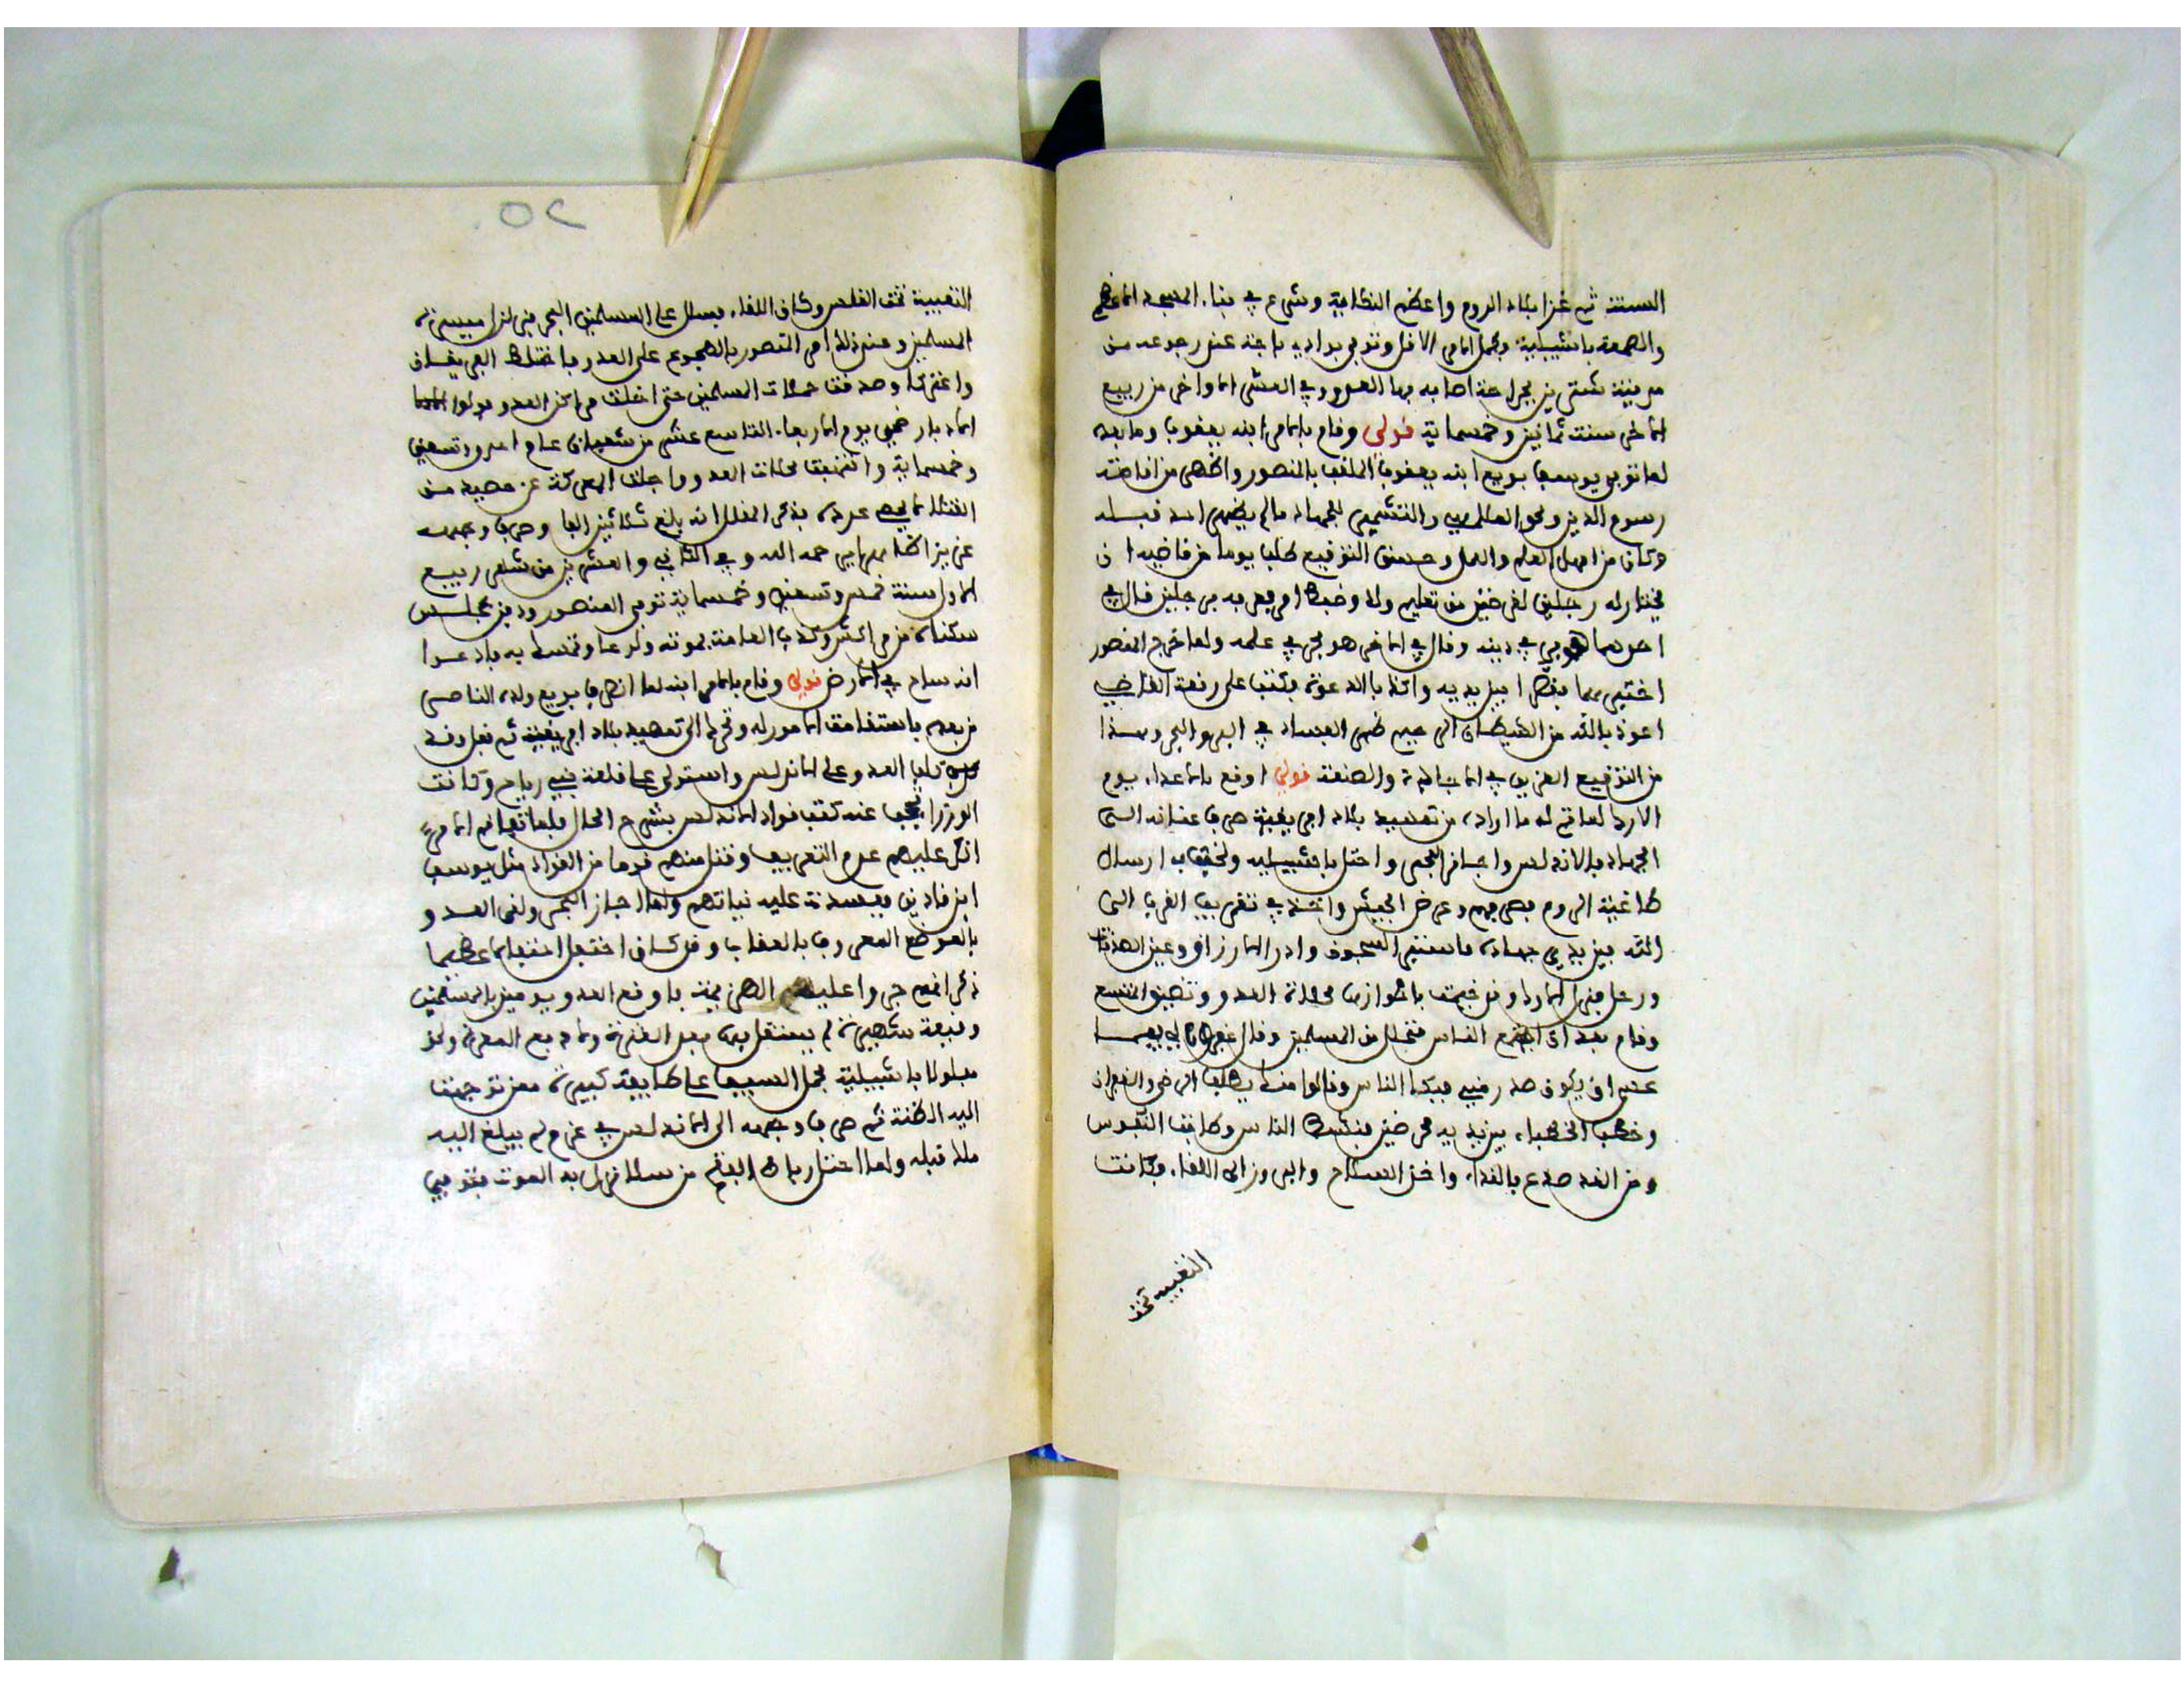 الستة ثم غزا بلاد الروم واعظم النكاية وشرع في بناء المسجد الاعظم
والصمعة باشبيلية وكمل الامر الاول وتوفي بوادي باجة عند رجوعه من
مدينة شنترين بجراحة اصابه بها العدو وفي العشر الاواخر من ربيع
الاخر سنة ثمانين وخمسماية قولي وقام بالامر ابنه يعقوب وما بعده
لما توفي يوسف بويع ابنه يعقوب الملقب بالمنصور واظهر من اقامة
رسوم الدين ومحو المناكر والتشمير للجهاد ما لم يظهره احد قبله
وكان من اهل العلم والعمل وحسن التوقيع طلب يوما من قاضيه ان
يختار له رجلين لغرضين من تعليم ولد وضبط امر فعرفه برجلين قال في
احدهما هو بر في دينه وقال في الاخر هو بحر في علمه ولما خرج المنصور
اختبرهما بفضل بين يديه واكذبا الدعوة فكتب على رقعة القاضي
اعوذ بالله من الشيطان الرجيم ظهر الفساد في البر والبحر وهذا
من التوقيع الغريب في الاجادة والصنعة قولي اوقع بالاعداء يوم
الارك لما تم له ما اراده من تمهيد بلاد افريقية صرف عنانه الى
الجهاد بالاندلس واجاز البحر واحتل باشبيلية ارسال
طاغية الروم فصرفهم وعرض الجيش واخذ في تقريب القرب الى
الله بين يدي جهاده فاستبرا السجون وادر الارزاق وعين الصدقات
ورحل فنزل الارك وقد خيمت باحوازها محلات العدو وتضيق المتسع
وقام بعد ان اجتمع الناس فتحلل من المسلمين وقال اغفروا لي فيما
عسى ان يكون صدر مني فبكى الناس وقالوا منك يطلب الرضى والغفران
وخطب الخطباء بين يديه محرضين فنشط الناس وطابت النفوس
ومن الغد صدع بالنداء واخذ السلاح والبروز الى اللقاء فكانت
النغبية تحت
٥٢
النغبية تحت الغلس وكان اللقاء فسال على المسلمين البحر فنزلت ميسرة
المسلمين وعند ذلك امر المنصور بالهجوم على العدو فاختلط الفريقان
واعتركا وصدقت حملات المسلمين حتى اخلت مراكز العدو وولوا
الادبار ضحى يوم الاربعاء التاسع عشر من شعبان عام احد وتسعين
وخمسماية وانتهبت محلات العدو واجلت المعركة عن حصيد من
القتلى عدده فذكر المقلل انه بلغ ثلاثين الفا وصرف وجهه
عزيزا ظاهرا رحمه الله وفي الثاني والعشرين من شهر ربيع
الاول سنة خمس وتسعين وخمسماية توفي المنصور ودفن بمجلس
سكناه من مراكش وكذب العامة بموته ولوعا وتمسكا به فادعوا
انه ساح في الارض قولي وقام بالامر ابنه لما انصرف بويع ولده الناصر
من بعده باستقامة الامور له وتحرك الى تمهيد بلاد افريقية ثم نقل وقد
تكلب العدو على الاندلس واستولى على قلعة بني رباح وكانت
الوزراء تحجب عنه كتب قواد الاندلس بشرح الحال فلما تفاقم الامر
انكر عليهم عدم التعريف وقتل منهم قوما من القواد مثل يوسف
ابن قادس ففسدت عليه نياتهم ولما اجاز البحر ولقى العدو
بالموضع المعروف بالعقاب وقد كان احتفل احتفالا عظيما
ذكر انهم جروا عليه الهزيمة فاوقع العدو يومئذ بالمسلمين
وقيعة شهيرة لم يستقل بها بعد العثرة ولا دفع المعرة ولحق
مفلولا باشبيلية فحمل السيف على طايفة كبيرة ممن توجهت
اليه الظنة ثم صرف وجهه الى الاندلس في عزم لم يبلغ اليه
ملك قبله ولما احتل رباط الفتح من سلا نزل به الموت فتوفي